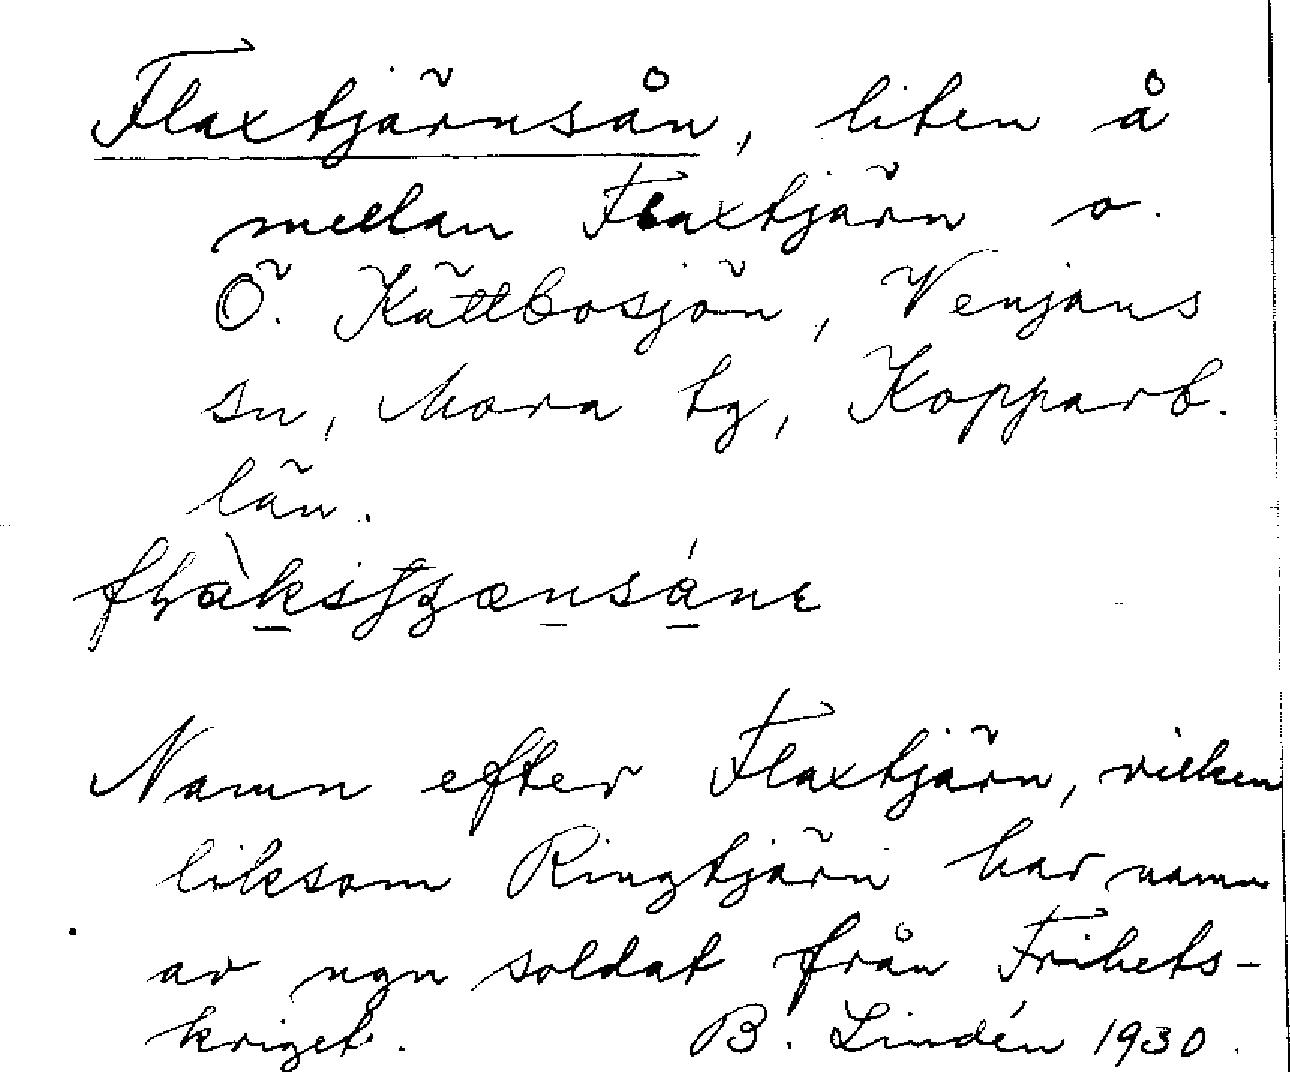 Flaxtjärnsån, liten å
mellan Flaxtjärn o.
Ö. Kättbosjön, Venjans
sn, Mora tg, Kopparb.
län.
Namn efter Flaxtjärn, vilken
liksom Ringtjärn har namn
av ngn soldat från Frihets-
kriget. B. Lindén 1930.